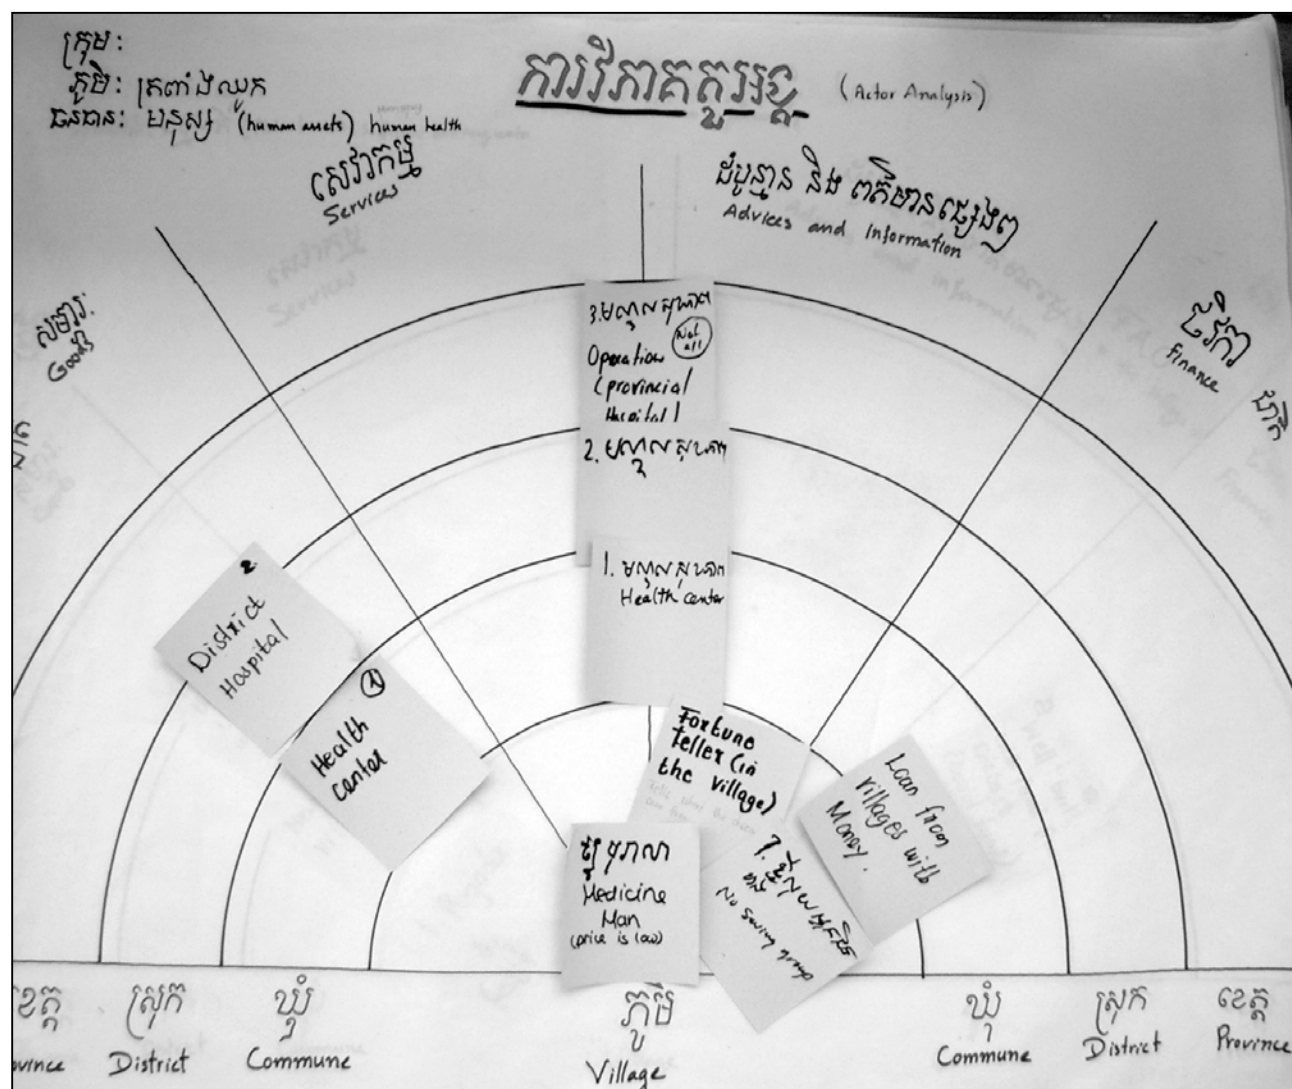 ក្រុម:
ភូមិ: ត្រពាំងឈូក
ធនធាន: មនុស្ស (human assets) human health
ការវិភាគតួអង្គ (Actor Analysis)
សេវាកម្ម
Services
ដំបូន្មាន និង ពត៌មានផ្សេងៗ
Advices and Information
សម្ភារៈ
Goods
ថវិកា
Finance
ជាតិ
3. មណ្ឌលសុខភាព
Not all
Operation
(provincial
Hospital)
2. មណ្ឌលសុខភាព
1. មណ្ឌលសុខភាព
Health center
2
District
Hospital
1
Health
center
Fortune
teller (in
the village)
Loan from
villages with
Money.
គ្រូបុរាណ
Medicine
Man
(price is low)
No saving group
ខេត្ត
ស្រុក
ឃុំ
ភូមិ
ឃុំ
ស្រុក
ខេត្ត
ovince
District
Commune
Village
Commune
District
Province